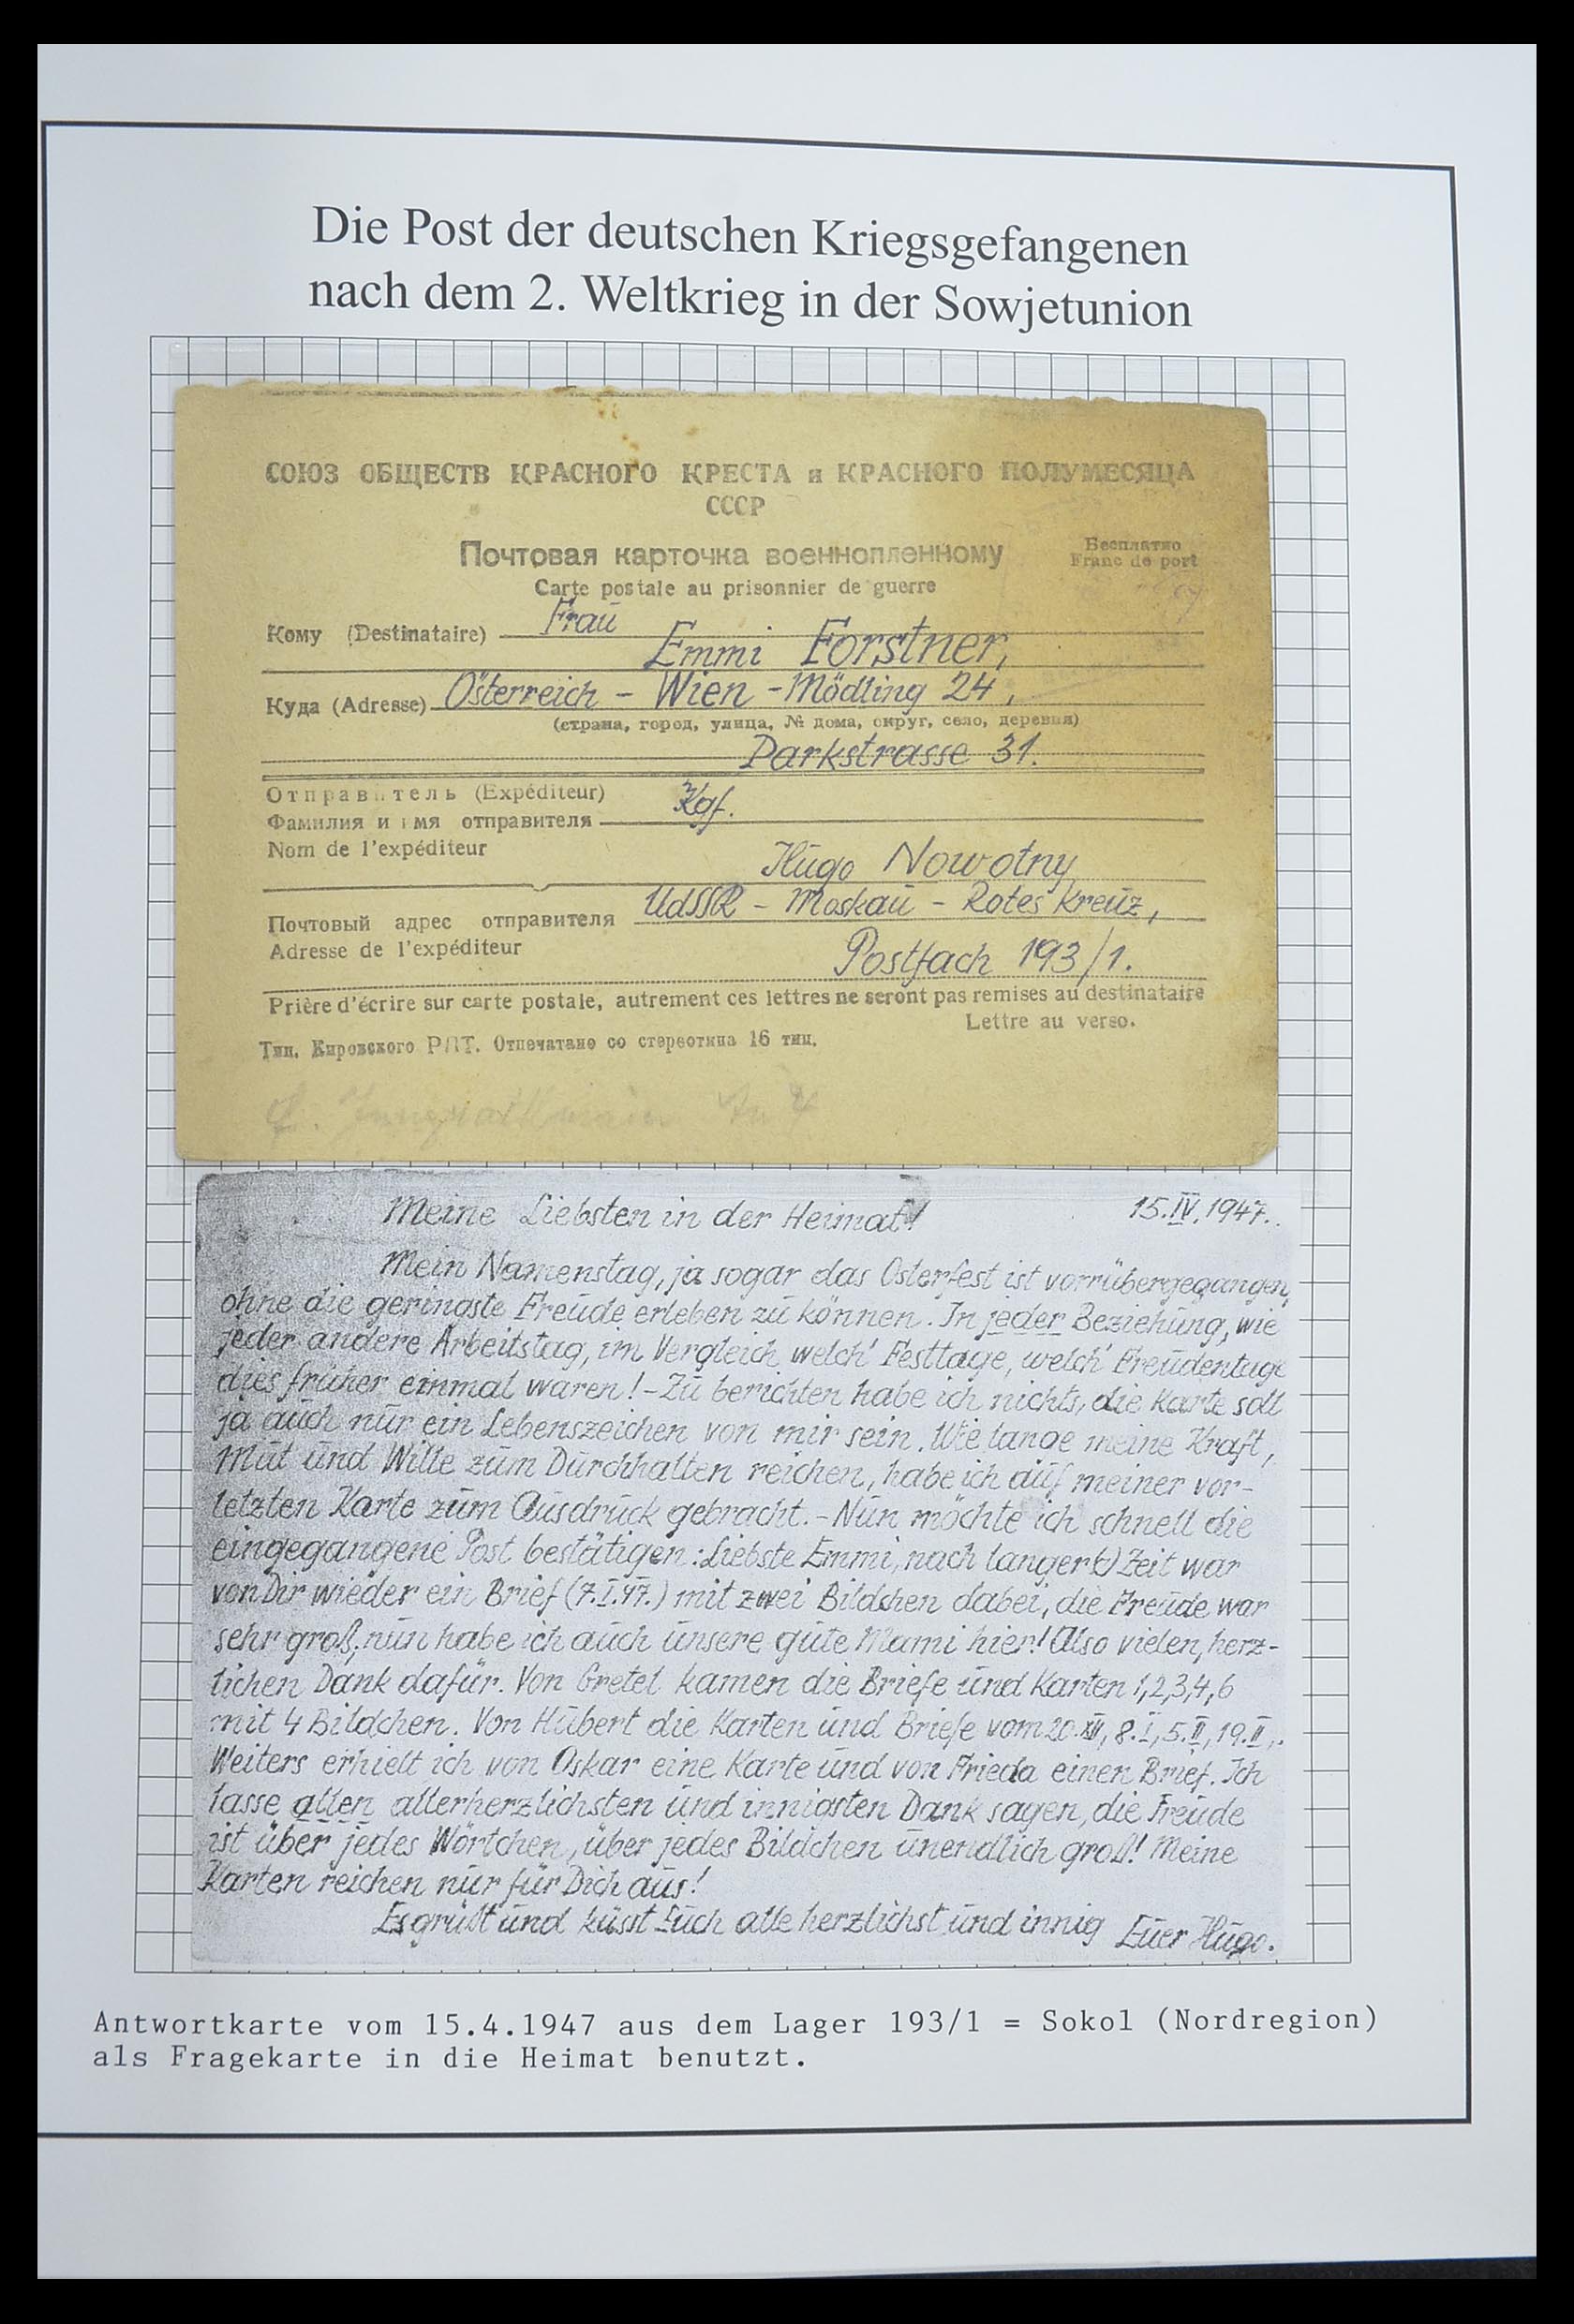 Die Post der deutschen Kriegsgefangenen
nach dem 2. Weltkrieg in der Sowjetunion
СОЮЗ ОБЩЕСТВ КРАСНОГО КРЕСТА и КРАСНОГО ПОЛУМЕСЯЦА
СССР
Почтовая карточка военнопленному
Бесплатно
Franc de port
Carte postale au prisonnier de guerre
Кому (Destinataire) Frau
Emmi Forstner,
Куда (Adresse) Österreich - Wien - Mödling 24,
(страна, город, улица, № дома, округ, село, деревня)
Parkstrasse 31.
Отправитель (Expéditeur) Kgf.
Фамилия и имя отправителя
Nom de l'expéditeur
Hugo Nowotny
UdSSR - Moskau - Rotes Kreuz,
Почтовый адрес отправителя
Adresse de l'expéditeur
Postfach 193/1.
Prière d'écrire sur carte postale, autrement ces lettres ne seront pas remises au destinataire
Lettre au verso.
Тип. Кировского РПТ. Отпечатано со стереотипа 16 тип.
Meine Liebsten in der Heimat! 15.IV.1947.
Mein Namenstag, ja sogar das Osterfest ist vorrübergegangen,
ohne die geringste Freude erleben zu können. In jeder Beziehung, wie
jeder andere Arbeitstag, im Vergleich welch' Festtage, welch' Freudentage
dies früher einmal waren! - Zu berichten habe ich nichts, die Karte soll
ja auch nur ein Lebenszeichen von mir sein. Wie lange meine Kraft,
Mut und Wille zum Durchhalten reichen, habe ich auf meiner vor-
letzten Karte zum Ausdruck gebracht. - Nun möchte ich schnell die
eingegangene Post bestätigen: Liebste Emmi, nach langer Zeit war
von Dir wieder ein Brief (7.I.47.) mit zwei Bildchen dabei, die Freude war
sehr groß, nun habe ich auch unsere gute Mami hier! Also vielen, herz-
lichen Dank dafür. Von Gretel kamen die Briefe und Karten 1,2,3,4,6
mit 4 Bildchen. Von Hubert die Karten und Briefe vom 20.XII, 8.I, 5.II, 19.II,.
Weiters erhielt ich von Oskar eine Karte und von Frieda einen Brief. Ich
lasse allen allerherzlichsten und innigsten Dank sagen, die Freude
ist über jedes Wörtchen, über jedes Bildchen unendlich groß! Meine
Karten reichen nur für Dich aus!
Es grüßt und küsst Euch alle herzlichst und innig Euer Hugo.
Antwortkarte vom 15.4.1947 aus dem Lager 193/1 = Sokol (Nordregion)
als Fragekarte in die Heimat benutzt.